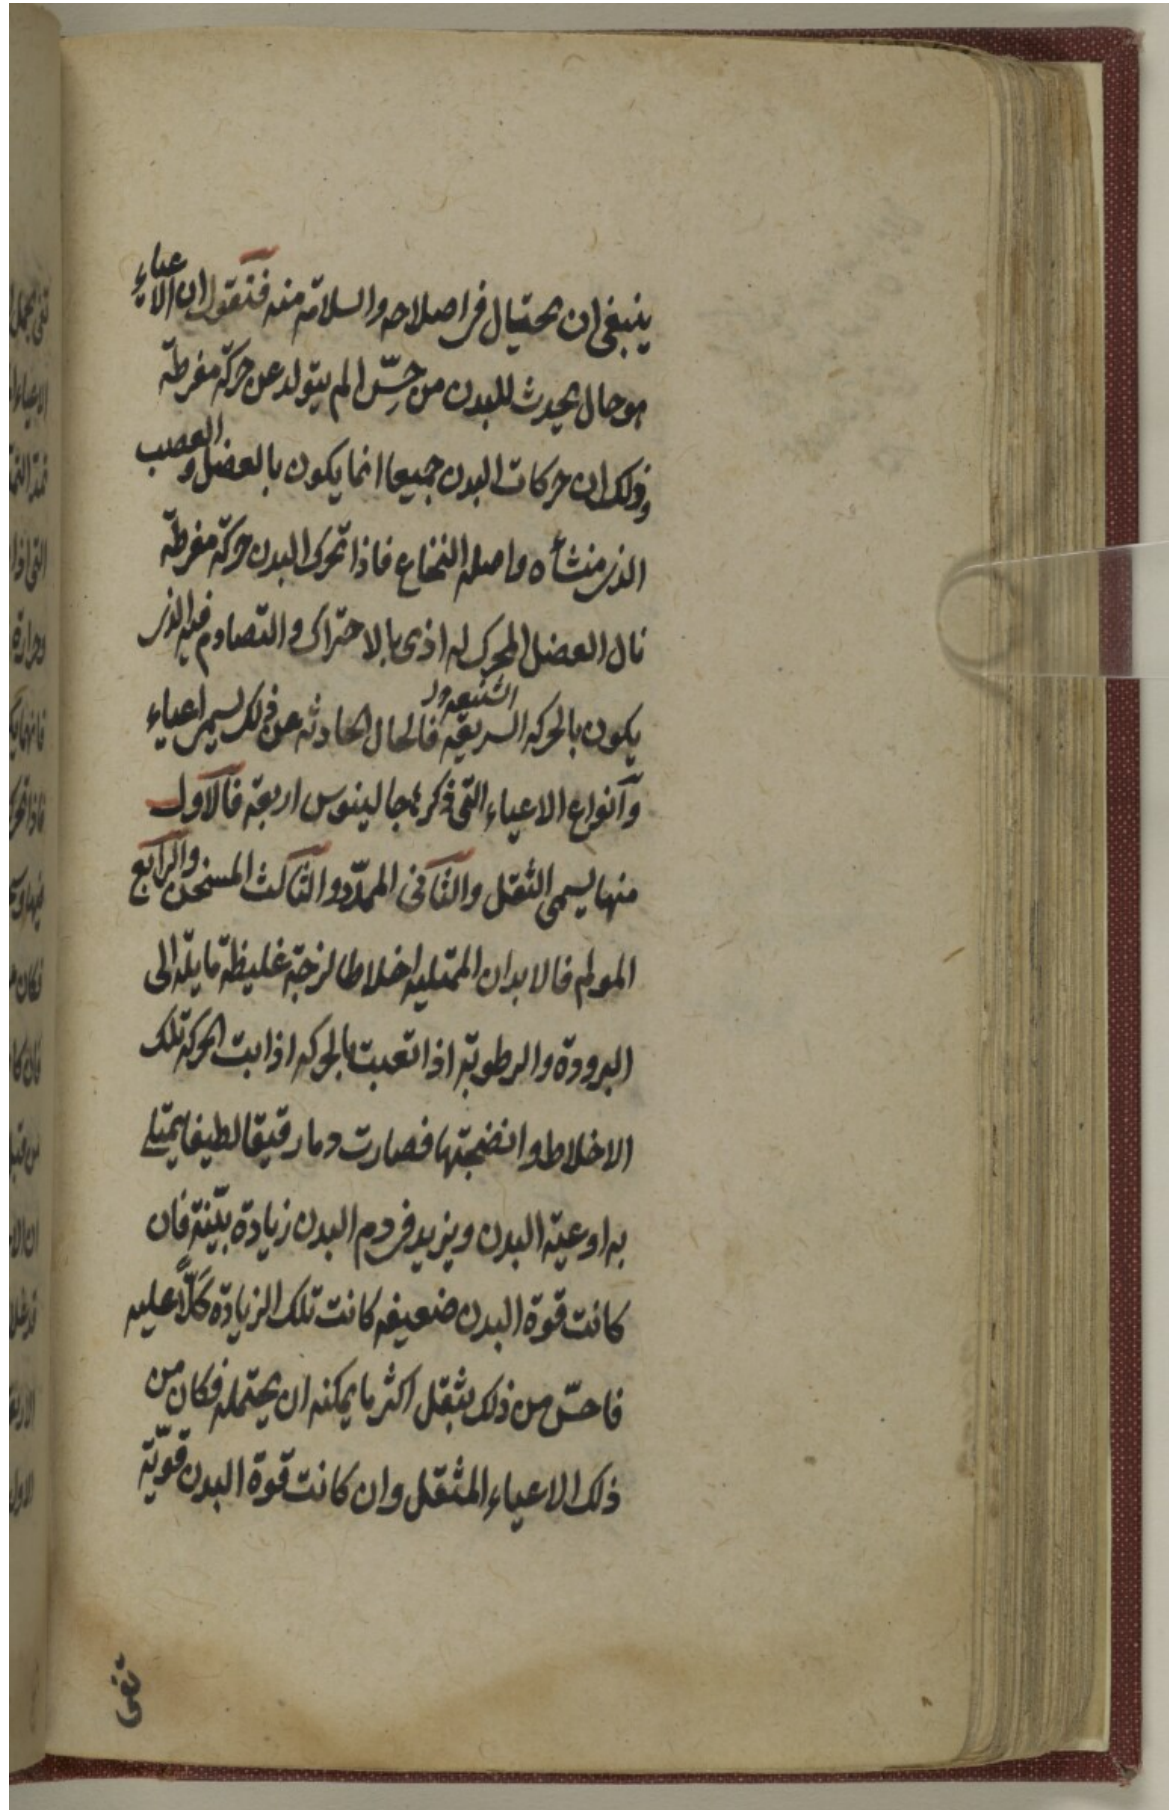 ينبغى ان يحتيال فى اصلاحه والسلامة منه فنقول ان الاعياء
هو حال يحدث للبدن من حسّ الم يتولد عن حركة مفرطة
وذلك ان حركات البدن جميعا انما يكون بالعضل والعصب
الذى منشأه واصله النخاع فاذا تحرك البدن حركة مفرطة
نال العضل المحرك له اذى بالاحتراك والتصادم فيه الذى
يكون بالحركه السريعة الشنيعه و فالحال الحادثه عن ذلك يسمى اعياء
وانواع الاعياء التى ذكرها جالينوس اربعة فالاول
منها يسمى الثقل والثانى الممدّد والثالث المسخن والرابع
المولم فالابدان الممتليه اخلاطا لزجة غليظة مايلة الى
البرودة والرطوبة اذا تعبت بالحركه اذابت الحركه تلك
الاخلاط وانضجتها فصارت دما رقيقا لطيفا يمتلى
به اوعية البدن ويزيد فى دم البدن زيادة بيّنة فان
كانت قوة البدن ضعيفه كانت تلك الزيادة كلّاً عليه
فاحسّ من ذلك بثقل اكثر ما يمكنه ان يحتمله فكان من
ذلك الاعياء المثقل وان كانت قوة البدن قويّة
تفى